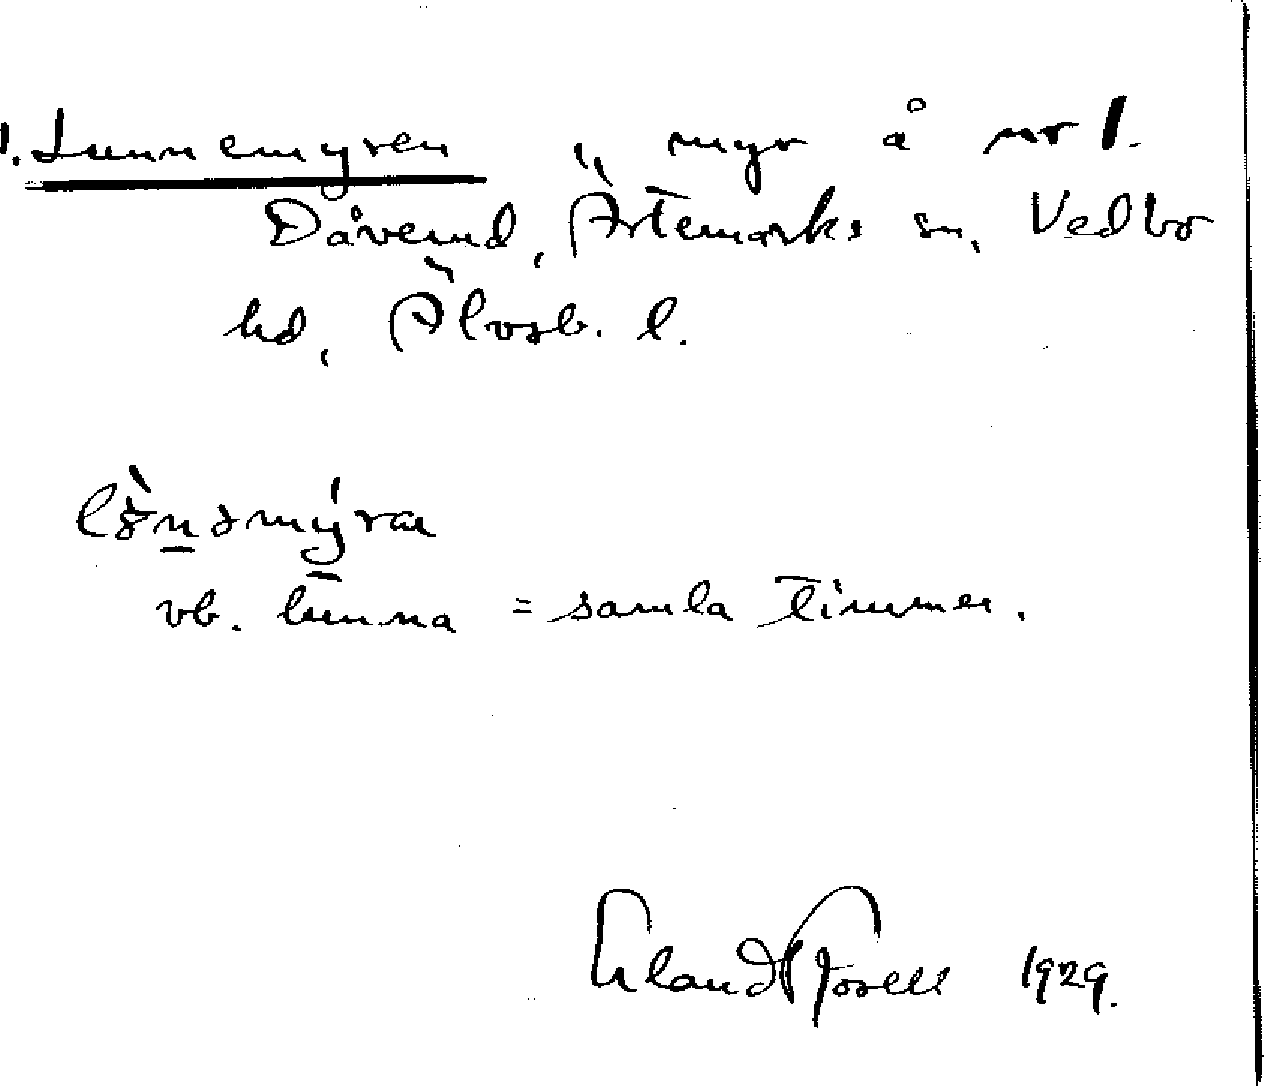 1. Lunnemyren, myr å nr 1.
Dåverud, Ärtemarks sn, Vedbo
hd, Älvsb. l.
vb. lunna = samla timmer.
Erland Rosell 1929.